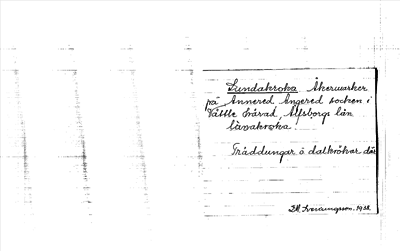 Lundakroka Åkermarker
på Annered Angered socken i
Vättle härad, Älfsborgs län
lavakroka.
Träddungar å dalkrökar där
E.M. Svenungsson. 1938.